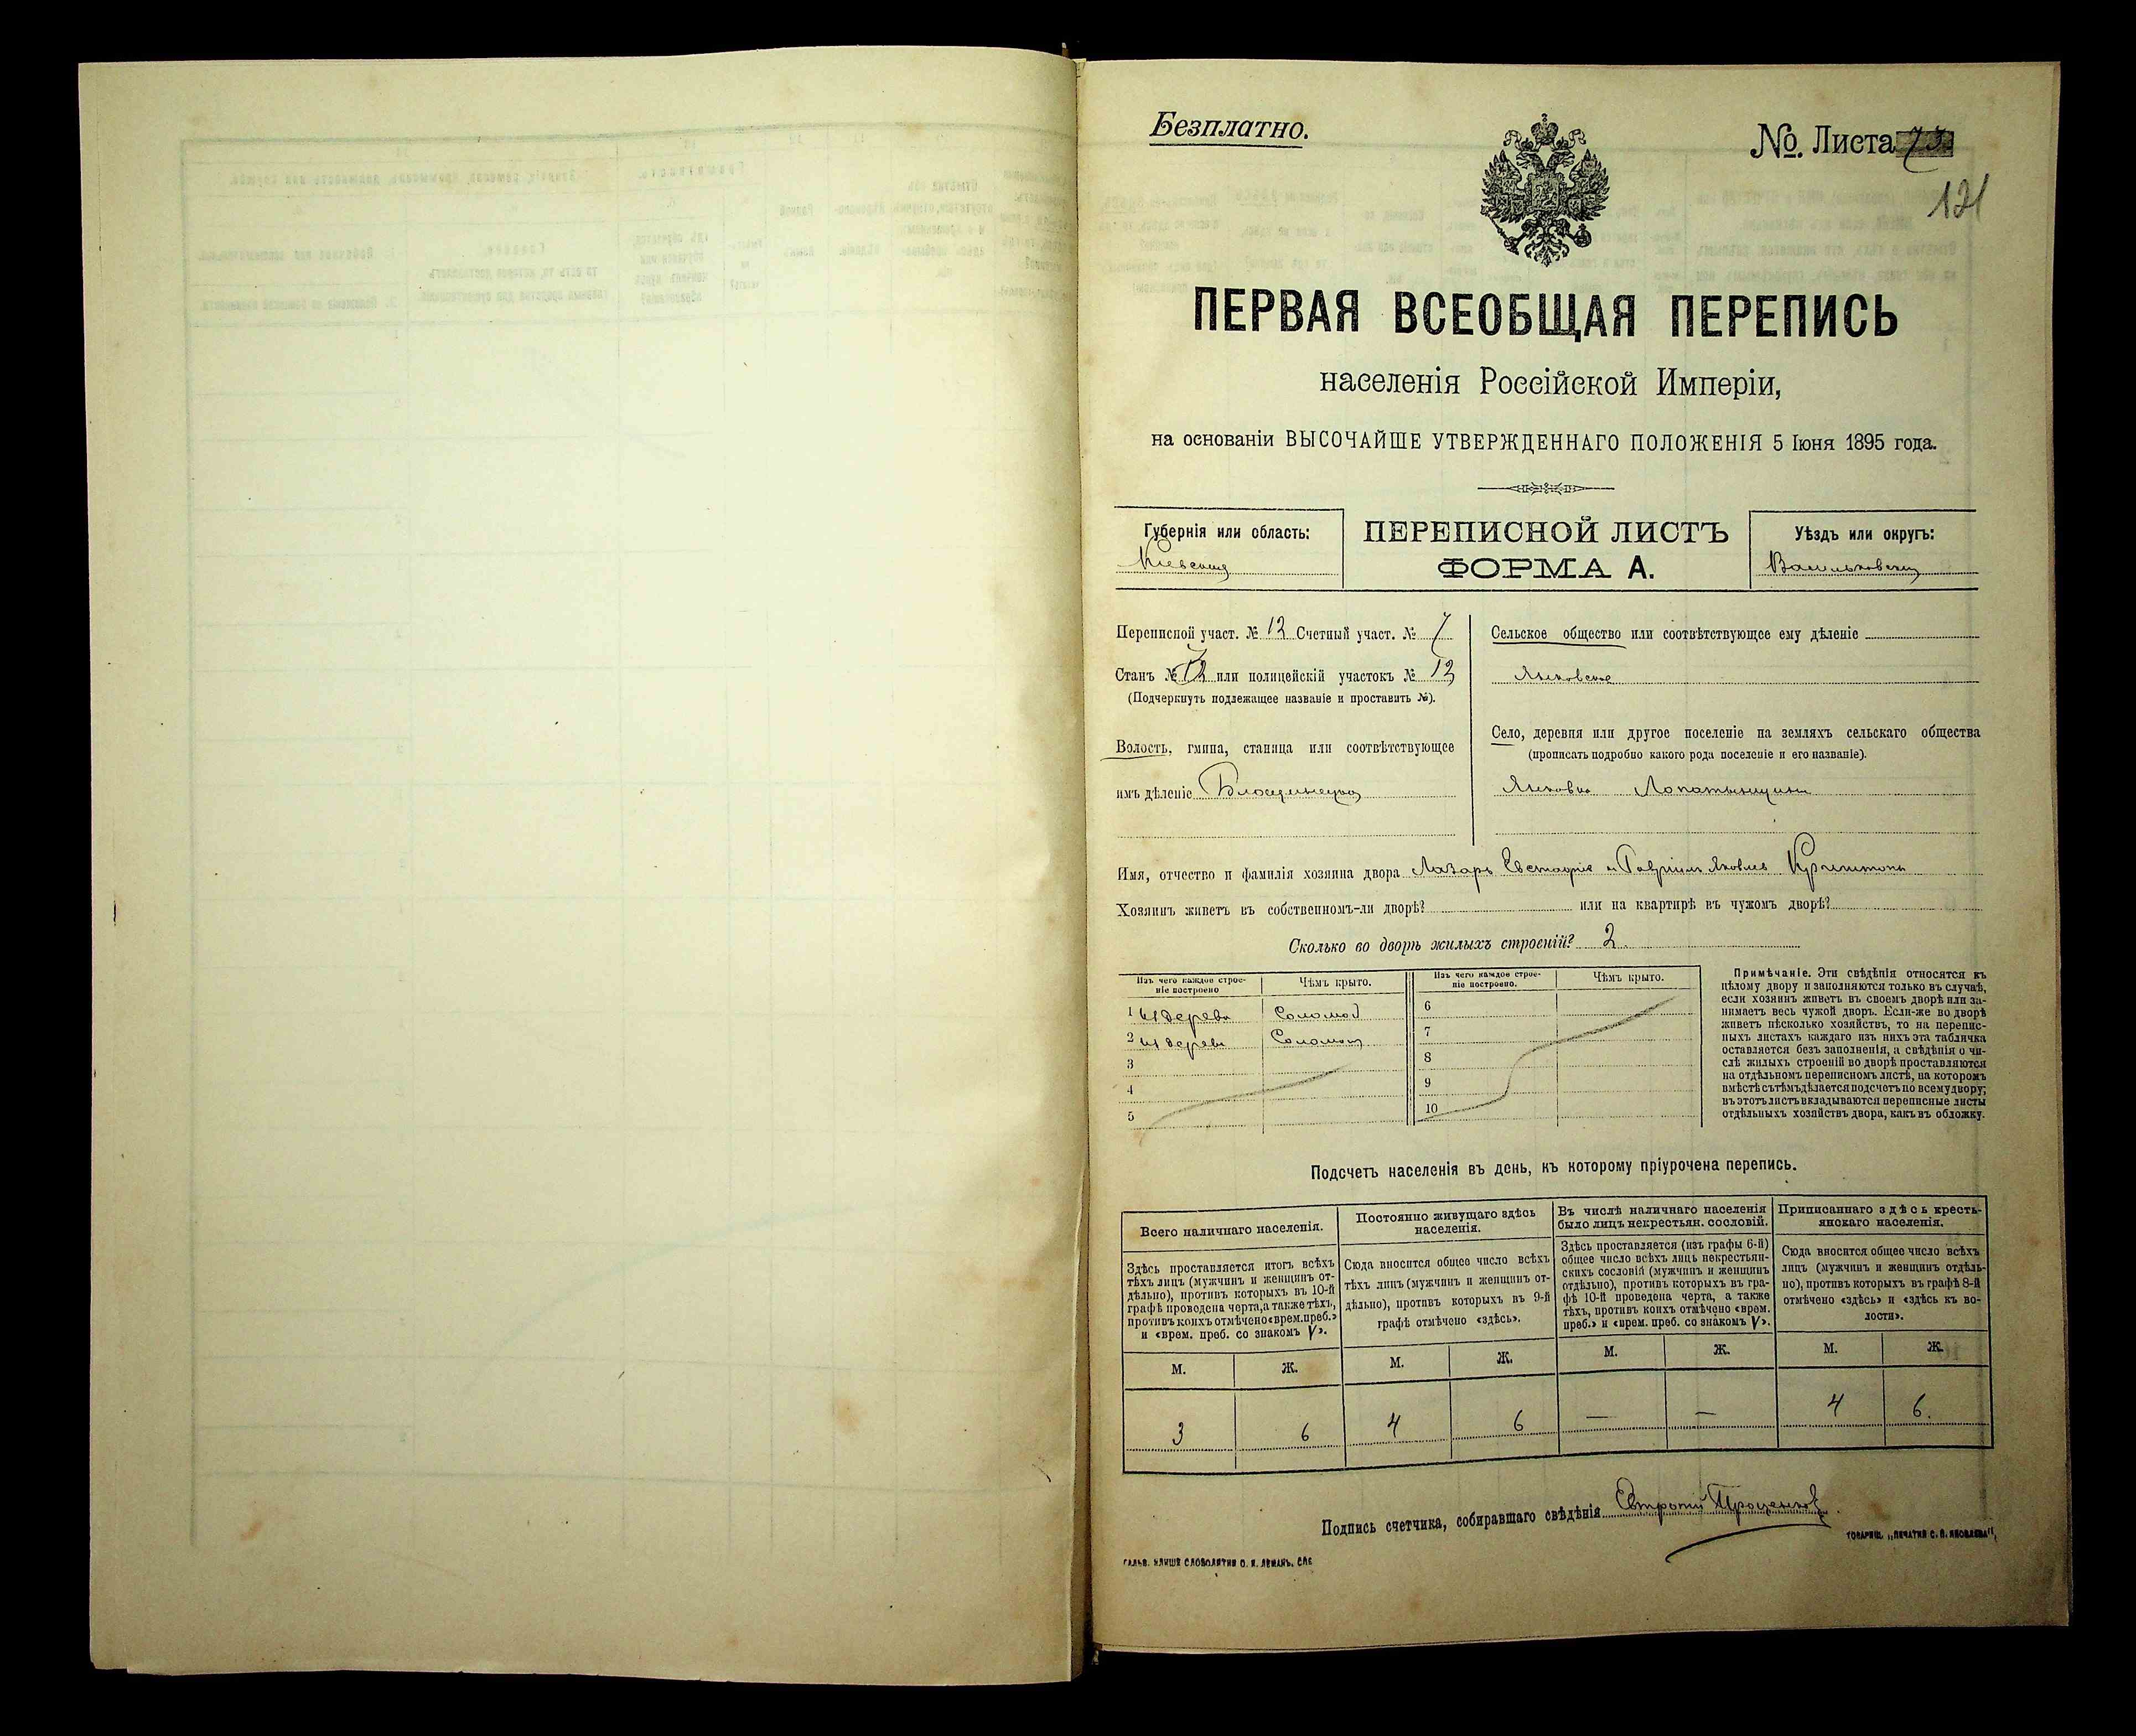 Безплатно.
№ Листа 73
121
ПЕРВАЯ ВСЕОБЩАЯ ПЕРЕПИСЬ
населенія Россійской Имперіи,
на основаніи ВЫСОЧАЙШЕ УТВЕРЖДЕННАГО ПОЛОЖЕНІЯ 5 Іюня 1895 года.
Губернія или область:
Кіевская
ПЕРЕПИСНОЙ ЛИСТЪ
ФОРМА А.
Уѣздъ или округъ:
Васильковскій
Переписной участ. № 12 Счетный участ. № 7
Станъ № или полицейскій участокъ № 12
(Подчеркнуть подлежащее названіе и проставить №).
Волость, гмина, станица или соотвѣтствующее
имъ дѣленіе
Сельское общество или соотвѣтствующее ему дѣленіе
Село, деревня или другое поселеніе на земляхъ сельскаго общества
(прописать подробно какого рода поселеніе и его названіе).
Имя, отчество и фамилія хозяина двора Лазарь Евстафіев и Гавріилъ Яковлев
Хозяинъ живетъ въ собственномъ-ли дворѣ? или на квартирѣ въ чужомъ дворѣ?
Сколько во дворѣ жилыхъ строеній? 2
Изъ чего каждое строе-
ніе построено
Чѣмъ крыто.
Изъ чего каждое строе-
ніе построено.
Чѣмъ крыто.
1 из дерева Соломой
2 из дерева Соломой
3
4
5
6
7
8
9
10
Примѣчаніе. Эти свѣдѣнія относятся къ
цѣлому двору и заполняются только въ случаѣ,
если хозяинъ живетъ въ своемъ дворѣ или за-
нимаетъ весь чужой дворъ. Если-же во дворѣ
живетъ нѣсколько хозяйствъ, то на перепис-
ныхъ листахъ каждаго изъ нихъ эта табличка
оставляется безъ заполненія, а свѣдѣнія о чи-
слѣ жилыхъ строеній во дворѣ проставляются
на отдѣльномъ переписномъ листѣ, на которомъ
вмѣстѣ съ тѣмъ дѣлается подсчетъ по всему двору;
въ этотъ листъ вкладываются переписные листы
отдѣльныхъ хозяйствъ двора, какъ въ обложку.
Подсчетъ населенія въ день, къ которому пріурочена перепись.
Всего наличнаго населенія.
Здѣсь проставляется итогъ всѣхъ
тѣхъ лицъ (мужчинъ и женщинъ от-
дѣльно), противъ которыхъ въ 10-й
графѣ проведена черта, а также тѣхъ,
противъ коихъ отмѣчено «врем. преб.»
и «врем. преб. со знакомъ V».
Постоянно живущаго здѣсь
населенія.
Сюда вносится общее число всѣхъ
тѣхъ лицъ (мужчинъ и женщинъ от-
дѣльно), противъ которыхъ въ 9-й
графѣ отмѣчено «здѣсь».
Въ числѣ наличнаго населенія
было лицъ некрестьян. сословій.
Здѣсь проставляется (изъ графы 6-й)
общее число всѣхъ лицъ некрестьян-
скихъ сословій (мужчинъ и женщинъ
отдѣльно), противъ которыхъ въ гра-
фѣ 10-й проведена черта, а также
тѣхъ, противъ коихъ отмѣчено «врем.
преб.» и «врем. преб. со знакомъ V».
Приписаннаго здѣсь кресть-
янскаго населенія.
Сюда вносится общее число всѣхъ
лицъ (мужчинъ и женщинъ отдѣль-
но), противъ которыхъ въ графѣ 8-й
отмѣчено «здѣсь» и «здѣсь къ во-
лости».
М. Ж. М. Ж. М. Ж. М. Ж.
3 6 4 6 — — 4 6.
Подпись счетчика, собиравшаго свѣдѣнія Проценко
ГАЛЬВ. КЛИШЕ СЛОВОЛИТНИ О. И. ЛЕМАНЪ. СПБ
ТОВАРИЩ. „ПЕЧАТНЯ С. П. ЯКОВЛЕВА",